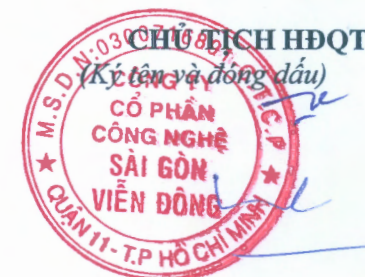 CHỦ TỊCH HĐQT
(Ký tên và đóng dấu)
M.S.D.N:0300
C.T.C.P
CÔNG TY
CỔ PHẦN
CÔNG NGHỆ
SÀI GÒN
VIỄN ĐÔNG
QUẬN 11 - T.P HỒ CHÍ MINH